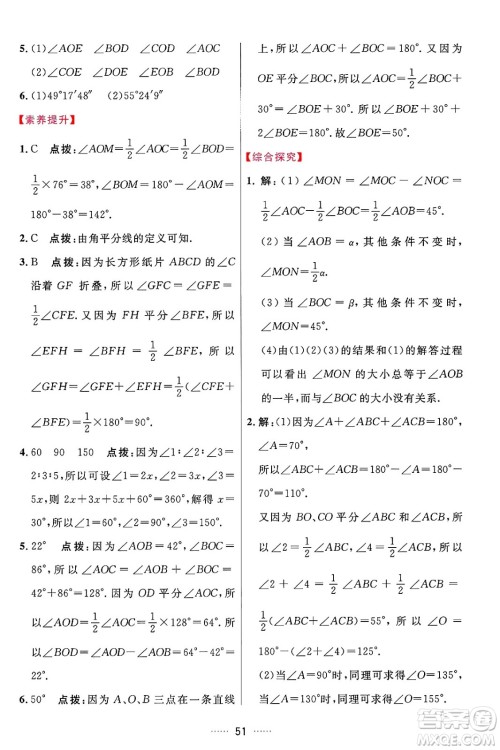 5. (1)∠AOE ∠BOD ∠AOC ∠BOC
(2)∠COE ∠BOD ∠AOC ∠BOD
6. (1)49°17′48″ (2)55°24′9″
【素养提升】
1. C 点拨：∠AOM=1/2∠AOC=1/2∠BOD=
1/2×76°=38°，∠BOM=180°-∠AOM=
180°-38°=142°.
2. C 点拨：由角平分线的定义可知.
3. B 点拨：因为长方形纸片 ABCD 的∠C
沿着 GF 折叠，所以∠CFG=∠GFE=
1/2∠CFE. 又因为 FH 平分∠BFE，所以
∠EFH=∠BFH=1/2∠BFE. 所以
∠GFH=∠GFE+∠EFH=1/2(∠CFE+
∠BFE)=1/2×180°=90°.
4. 60 90 150 点拨：因为∠1∶∠2∶∠3=
2∶3∶5，所以设∠1=2x，∠2=3x，∠3=
5x，则 2x+60°+3x+5x=360°，解得 x=
30°. 所以∠1=60°，∠2=90°，∠3=150°.
5. 22° 点拨：因为∠AOB=42°，∠BOC=
86°，所以∠AOC=∠AOB+∠BOC=
42°+86°=128°. 因为 OD 平分∠AOC，所
以∠AOD=1/2∠AOC=1/2×128°=64°. 所
以∠BOD=∠AOD-∠AOB=64°-42°=
22°.
6. 50° 点拨：因为 A、O、B 三点在一条直线
上，所以∠AOC+∠BOC=180°. 又因为
OE 平分∠BOC，所以∠BOE=1/2∠BOC.
所以∠AOC+2∠BOE=180°. 所以80°+
2∠BOE=180°. 故∠BOE=50°.
【综合探究】
1. 解：(1)∠MON=∠MOC-∠NOC=
1/2∠AOB=45°.
(2)当∠AOB=α，其他条件不变时，
∠MON=1/2α.
(3)当∠BOC=β，其他条件不变时，
∠MON=45°.
(4)由(1)(2)(3)的结果和(1)的解答过程
可以看出∠MON 的大小总等于∠AOB
的一半，而与∠BOC 的大小没有关系.
2. 解：(1)因为∠A+∠ABC+∠ACB=180°，
∠A=70°，
所以∠ABC+∠ACB=180°-∠A=180°-
70°=110°.
又因为 BO、CO 平分∠ABC 与∠ACB，
所以∠2=1/2∠ABC，∠4=1/2∠ACB，所以
∠2+∠4=1/2∠ABC+1/2∠ACB=
1/2(∠ABC+∠ACB)=55°，所以∠O=
180°-(∠2+∠4)=125°.
(2)当∠A=90°时，同理可求得∠O=135°，
当∠A=120°时，同理可求得∠O=150°.
51